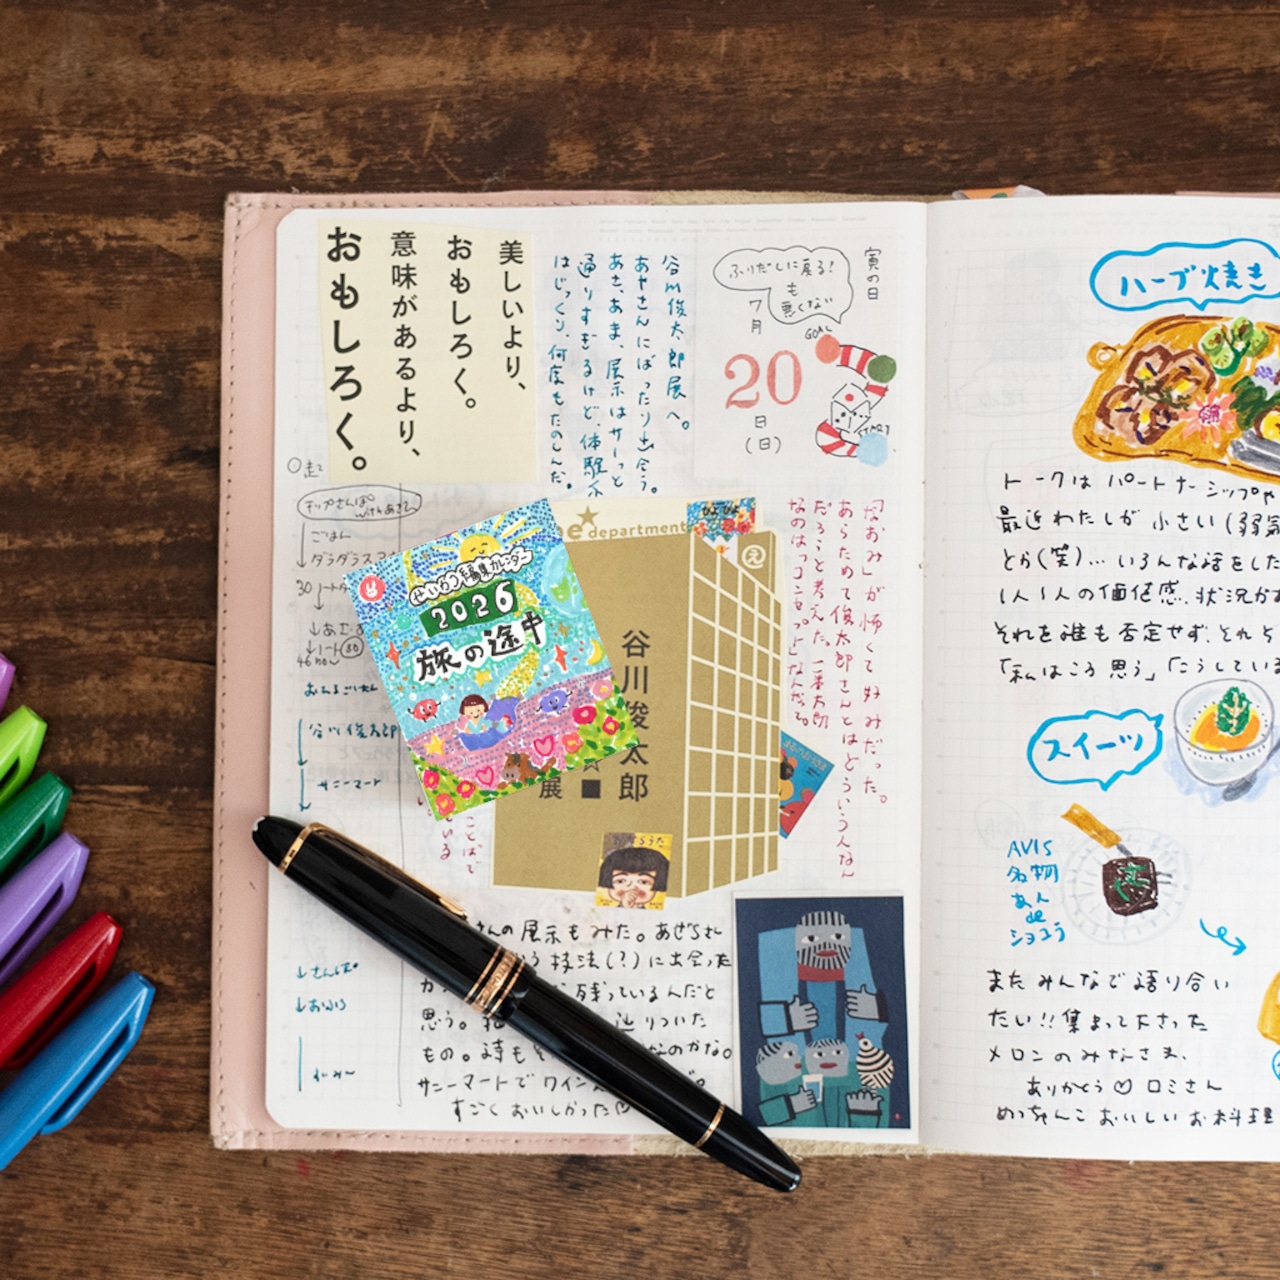 美しいより、
おもしろく。
意味があるより、
おもしろく。
谷川俊太郎展へ。
あやさんにばったり出会う。
あさ、あま、展示はサーっと
通りすぎるけど、体験は
はじっくり、何度もたのしんだ。
寅の日
ふりだしに戻る!
も
悪くない
7月
20
日
(日)
GOAL
START
ごはん
ダラダラ
30
谷川俊太郎
サニーマート
さんぽ
おふろ
e department
え
谷川俊太郎
展
2026
旅の途中
「なおみ」が怖くて好みだった。
あらためて俊太郎さんとはどういう人なん
だろうと考えた。一番太郎
なのは「コンセプト」なんだって。
ことばで
いる
さんの展示もみた。あぜちさん
技法(?)に出会った
残っているんだと
思う。
辿りついた
もの。詩も
なのかな。
サニーマートでワイン
すごくおいしかった
ハーブ焼き
トークはパートナーシップや
最近わたしが小さい(弱気
とか(笑)…いろんな話をした
1人1人の価値感、状況が
それを誰も否定せず、それぞ
「私はこう思う」「こうしている
スイーツ
AVIS
名物
あん
de
ショコラ
またみんなで語り合い
たい!!集まって下さった
メロンのみなさま、
ありがとう♡ロミさん
めっちゃんこおいしいお料理